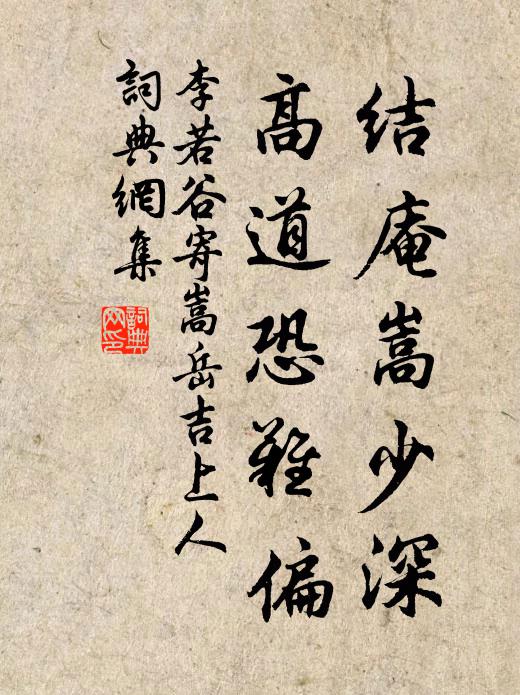 結庵嵩少深
高道恐難偏
李若谷寄嵩岳吉上人
詞典網集
詞典網印